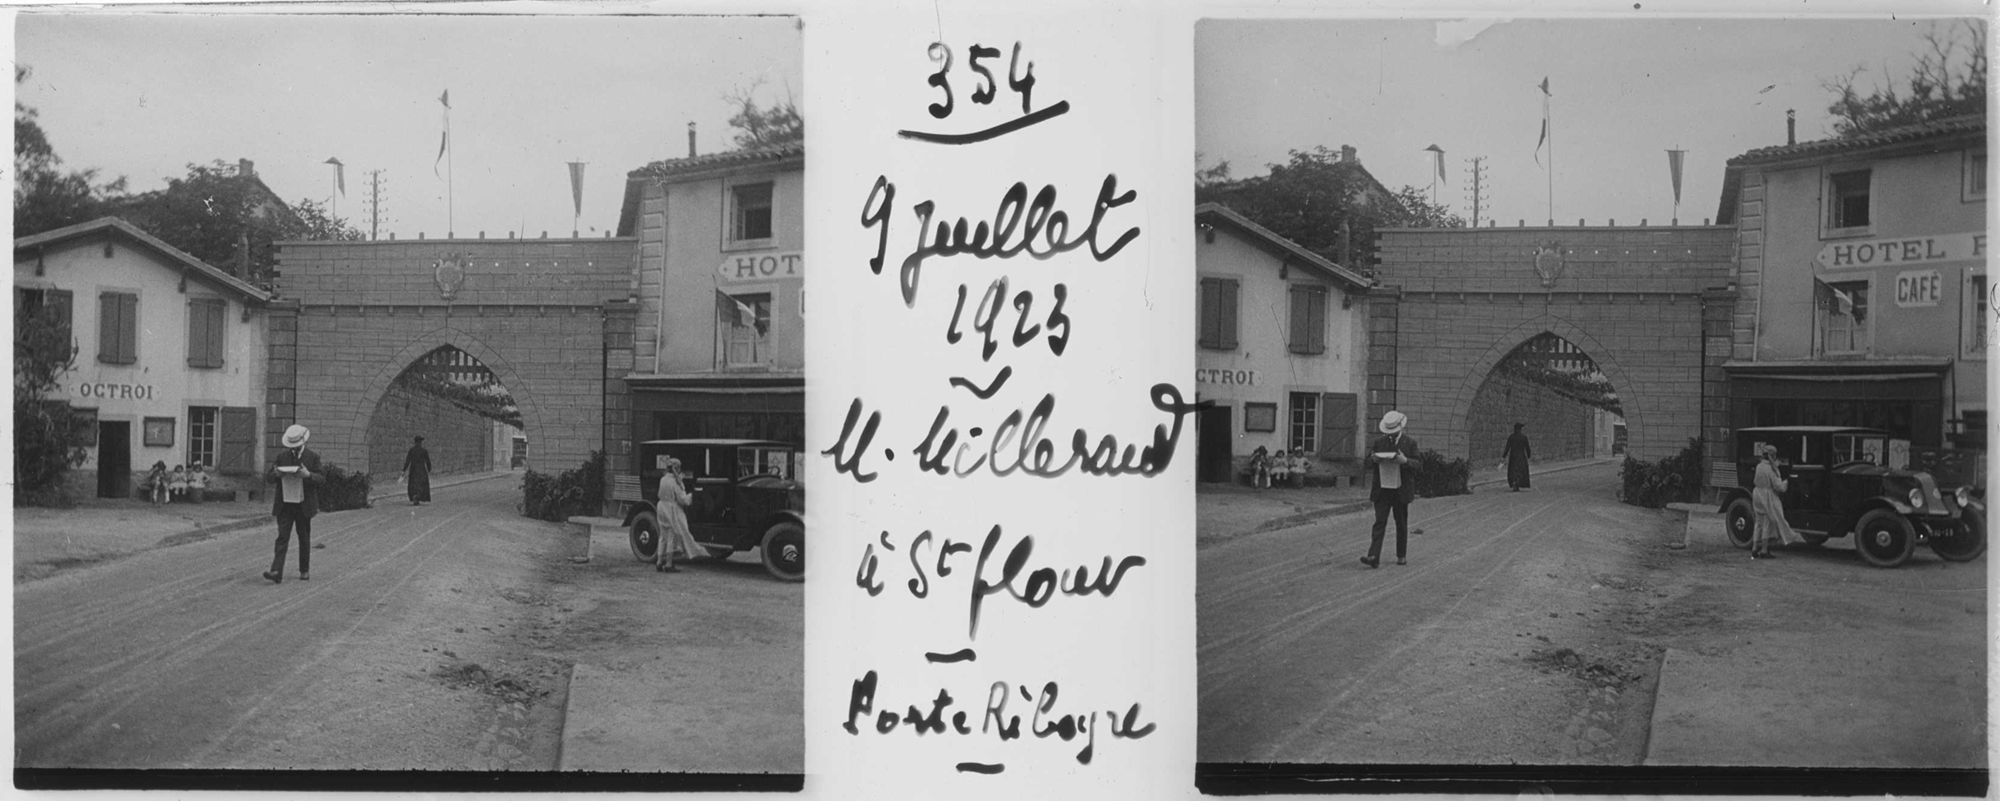 OCTROI
HOT
354
9 Juillet
1923
M. Millerand
à St flour
Porte Ribeyre
CTROI
HOTEL
CAFÉ